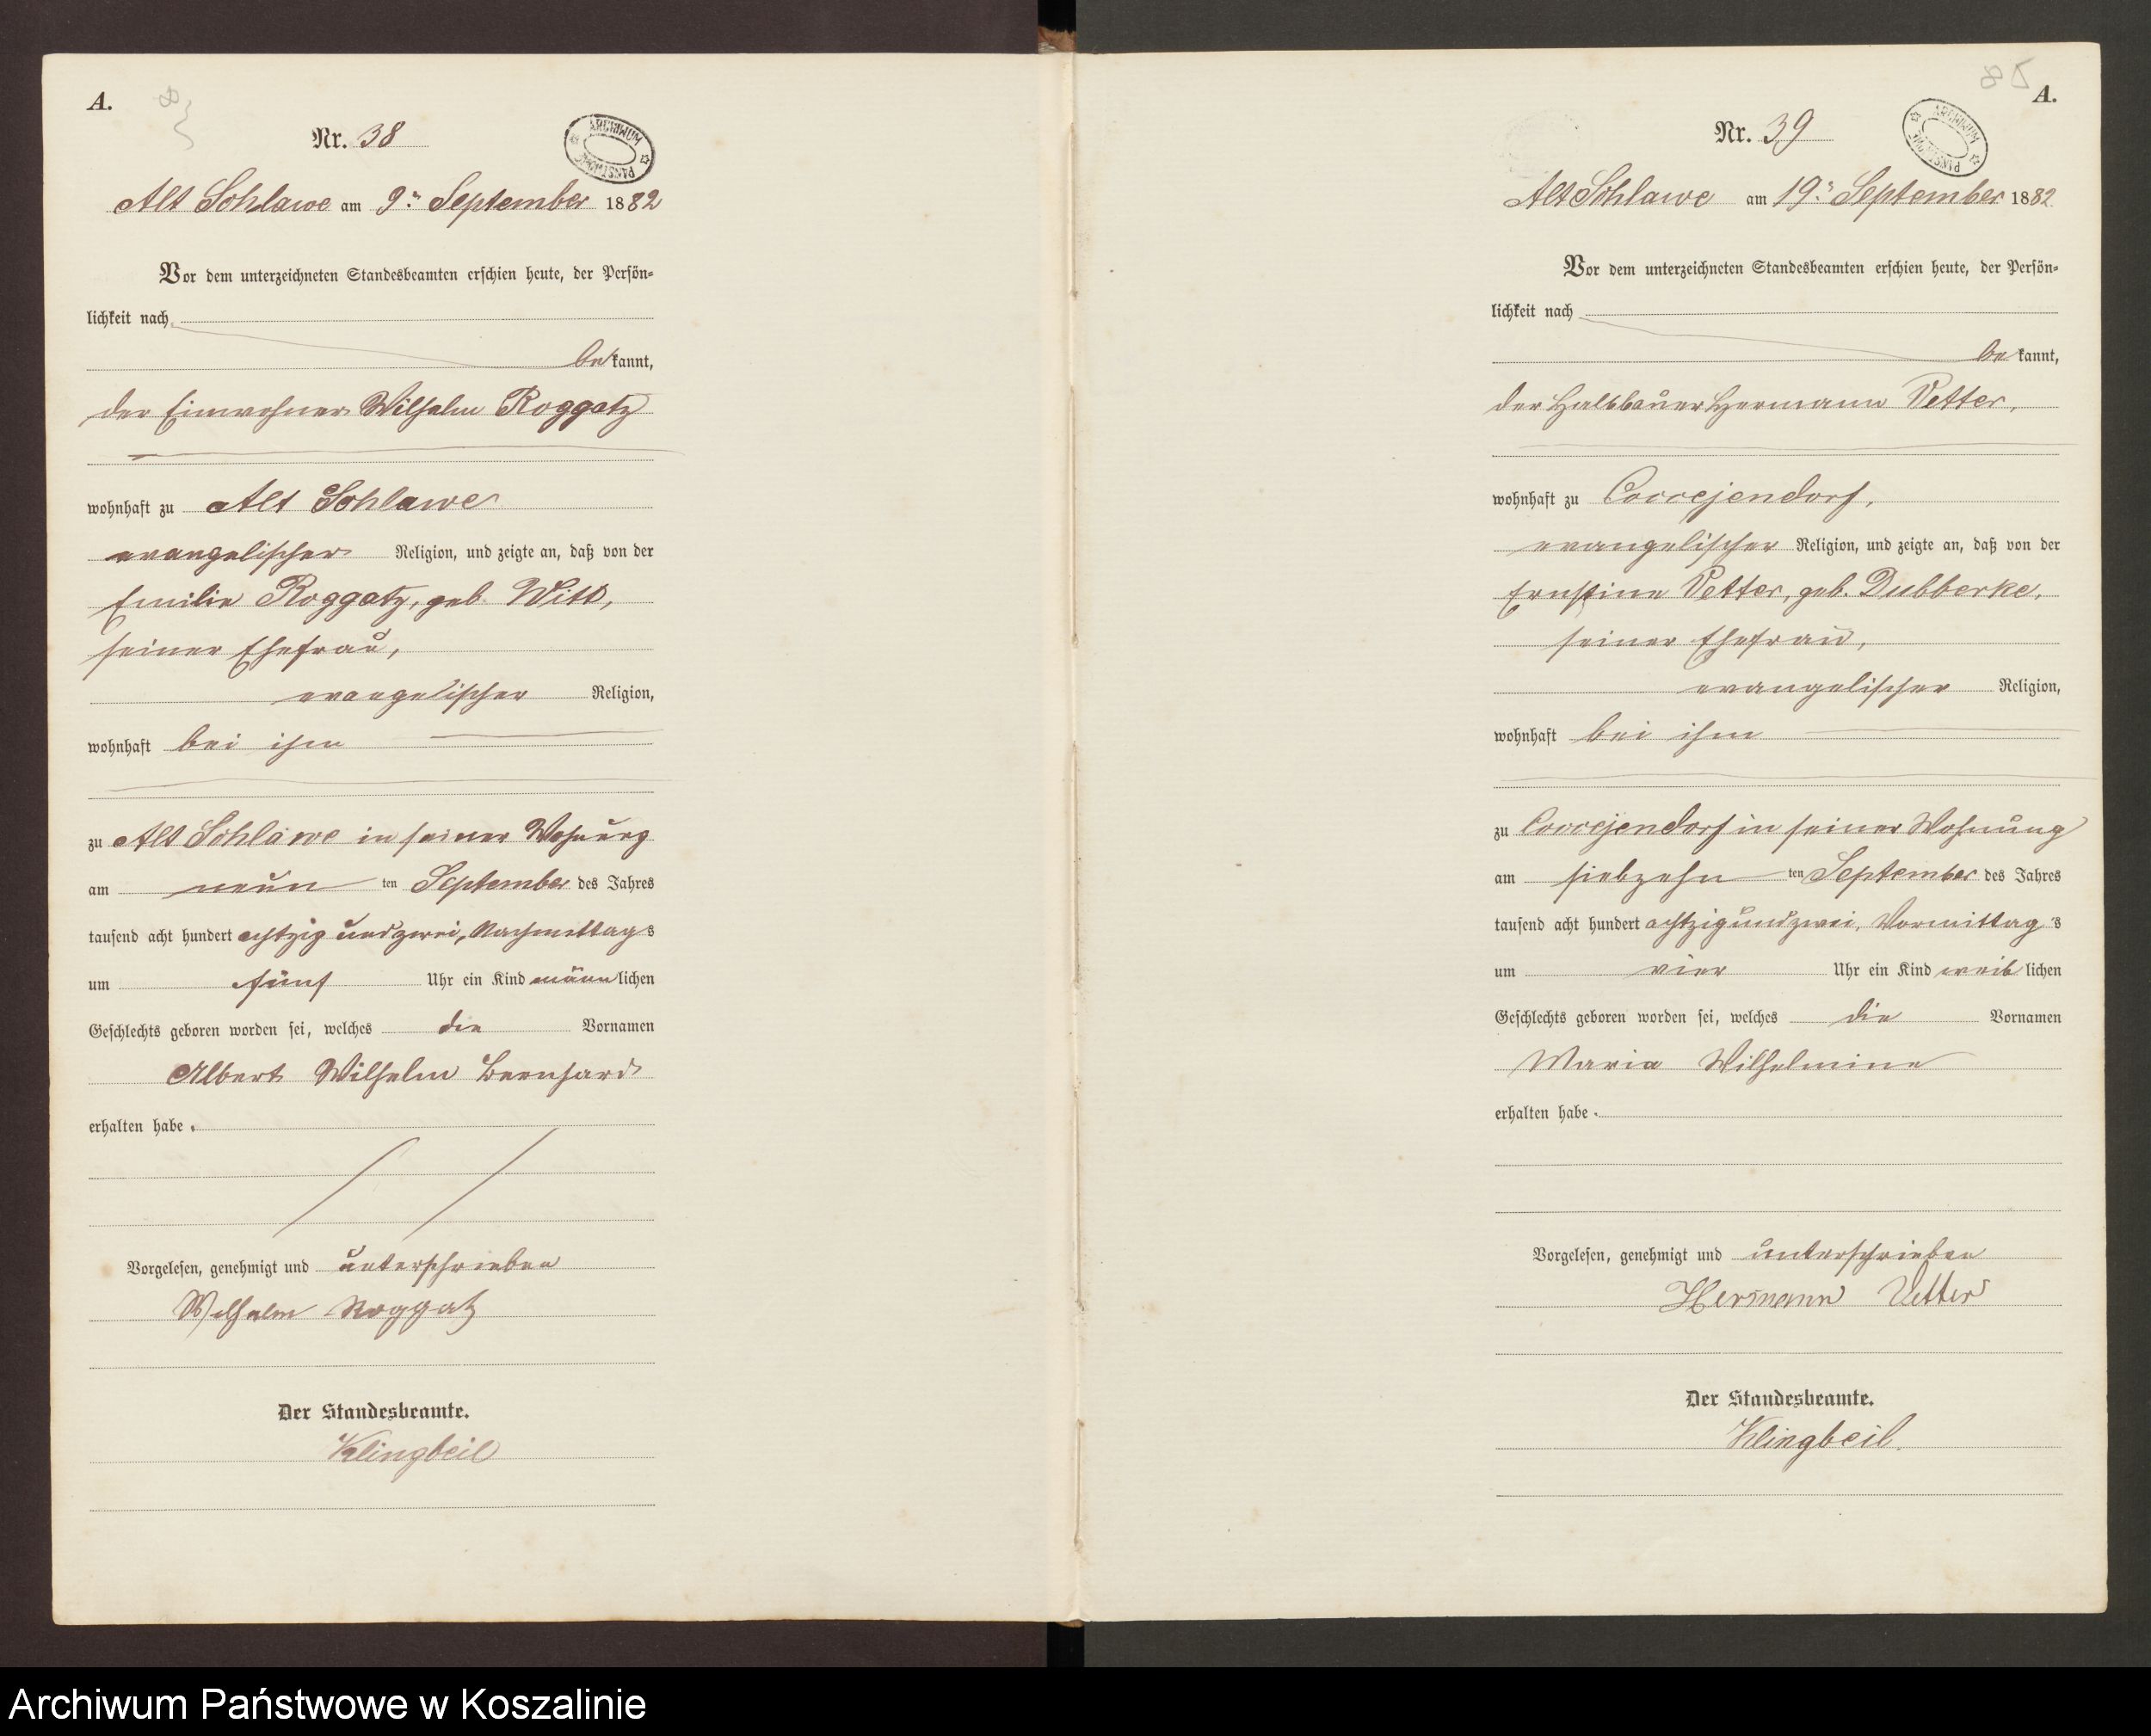 A.
Nr. 38
ARCHIWUM PAŃSTWOWE
Alt Schlawe am 9ten September 1882
Vor dem unterzeichneten Standesbeamten erschien heute, der Persön=
lichkeit nach
be kannt,
der Einwohner Wilhelm Roggatz
wohnhaft zu Alt Schlawe
evangelischer Religion, und zeigte an, daß von der
Emilie Roggatz, geb. Witt,
seiner Ehefrau,
evangelischer Religion,
wohnhaft bei ihm
zu Alt Schlawe in seiner Wohnung
am neun ten September des Jahres
tausend acht hundert achtzig und zwei, Nachmittags
um fünf Uhr ein Kind männ lichen
Geschlechts geboren worden sei, welches die Vornamen
Albert Wilhelm Bernhard
erhalten habe.
Vorgelesen, genehmigt und unterschrieben
Wilhelm Roggatz
Der Standesbeamte.
Klingbeil
85
A.
Nr. 39
ARCHIWUM PAŃSTWOWE
Alt Schlawe am 19ten September 1882
Vor dem unterzeichneten Standesbeamten erschien heute, der Persön=
lichkeit nach
be kannt,
der Halbbauer Hermann Vetter,
wohnhaft zu Coccejendorf,
evangelischer Religion, und zeigte an, daß von der
Ernstine Vetter, geb. Dubberke,
seiner Ehefrau,
evangelischer Religion,
wohnhaft bei ihm
zu Coccejendorf in seiner Wohnung
am siebzehn ten September des Jahres
tausend acht hundert achtzig und zwei, Vormittag s
um vier Uhr ein Kind weib lichen
Geschlechts geboren worden sei, welches die Vornamen
Maria Wilhelmine
erhalten habe.
Vorgelesen, genehmigt und unterschrieben
Hermann Vetter
Der Standesbeamte.
Klingbeil.
Archiwum Państwowe w Koszalinie